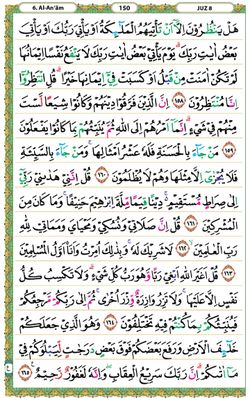 6. Al-An'ām 150 JUZ 8
هَلْ يَنْظُرُونَ إِلَّآ أَنْ تَأْتِيَهُمُ الْمَلٰٓئِكَةُ أَوْ يَأْتِيَ رَبُّكَ أَوْ يَأْتِيَ
بَعْضُ اٰيٰتِ رَبِّكَ يَوْمَ يَأْتِيْ بَعْضُ اٰيٰتِ رَبِّكَ لَا يَنْفَعُ نَفْسًا اِيْمَانُهَا
لَمْ تَكُنْ اٰمَنَتْ مِنْ قَبْلُ أَوْ كَسَبَتْ فِيْٓ اِيْمَانِهَا خَيْرًا قُلِ انْتَظِرُوْٓا
إِنَّا مُنْتَظِرُوْنَ ١٥٨ إِنَّ الَّذِيْنَ فَرَّقُوْا دِيْنَهُمْ وَكَانُوْا شِيَعًا لَسْتَ
مِنْهُمْ فِيْ شَيْءٍ إِنَّمَآ أَمْرُهُمْ إِلَى اللّٰهِ ثُمَّ يُنَبِّئُهُمْ بِمَا كَانُوْا يَفْعَلُوْنَ
١٥٩ مَنْ جَآءَ بِالْحَسَنَةِ فَلَهٗ عَشْرُ أَمْثَالِهَا وَمَنْ جَآءَ بِالسَّيِّئَةِ
فَلَا يُجْزٰٓى إِلَّا مِثْلَهَا وَهُمْ لَا يُظْلَمُوْنَ ١٦٠ قُلْ إِنَّنِيْ هَدٰىنِيْ رَبِّيْٓ
إِلٰى صِرَاطٍ مُّسْتَقِيْمٍ دِيْنًا قِيَمًا مِّلَّةَ إِبْرٰهِيْمَ حَنِيْفًا وَمَا كَانَ مِنَ
الْمُشْرِكِيْنَ ١٦١ قُلْ إِنَّ صَلَاتِيْ وَنُسُكِيْ وَمَحْيَايَ وَمَمَاتِيْ لِلّٰهِ
رَبِّ الْعٰلَمِيْنَ ١٦٢ لَا شَرِيْكَ لَهٗ وَبِذٰلِكَ أُمِرْتُ وَأَنَا أَوَّلُ الْمُسْلِمِيْنَ
١٦٣ قُلْ أَغَيْرَ اللّٰهِ أَبْغِيْ رَبًّا وَهُوَ رَبُّ كُلِّ شَيْءٍ وَلَا تَكْسِبُ كُلُّ
نَفْسٍ إِلَّا عَلَيْهَا وَلَا تَزِرُ وَازِرَةٌ وِّزْرَ أُخْرٰى ثُمَّ إِلٰى رَبِّكُمْ مَّرْجِعُكُمْ
فَيُنَبِّئُكُمْ بِمَا كُنْتُمْ فِيْهِ تَخْتَلِفُوْنَ ١٦٤ وَهُوَ الَّذِيْ جَعَلَكُمْ
خَلٰٓئِفَ الْأَرْضِ وَرَفَعَ بَعْضَكُمْ فَوْقَ بَعْضٍ دَرَجٰتٍ لِّيَبْلُوَكُمْ فِيْ
مَآ اٰتٰىكُمْ إِنَّ رَبَّكَ سَرِيْعُ الْعِقَابِ وَإِنَّهٗ لَغَفُوْرٌ رَّحِيْمٌ ١٦٥